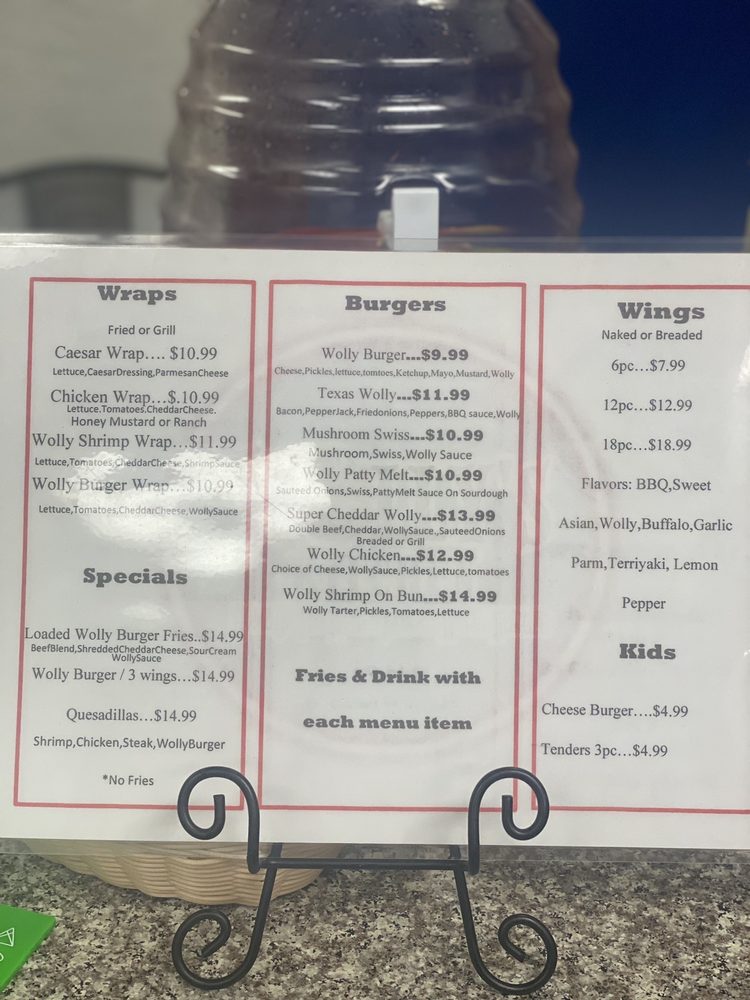 Wraps
Fried or Grill
Caesar Wrap.... $10.99
Lettuce,CaesarDressing,ParmesanCheese
Chicken Wrap...$.10.99
Lettuce.Tomatoes.CheddarCheese.
Honey Mustard or Ranch
Wolly Shrimp Wrap...$11.99
Lettuce,Tomatoes,CheddarCheese,ShrimpSauce
Wolly Burger Wrap...$10.99
Lettuce,Tomatoes,CheddarCheese,WollySauce
Specials
Loaded Wolly Burger Fries..$14.99
BeefBlend,ShreddedCheddarCheese,SourCream
WollySauce
Wolly Burger / 3 wings...$14.99
Quesadillas...$14.99
Shrimp,Chicken,Steak,WollyBurger
*No Fries
Burgers
Wolly Burger...$9.99
Cheese,Pickles,lettuce,tomtoes,Ketchup,Mayo,Mustard,Wolly
Texas Wolly...$11.99
Bacon,PepperJack,Friedonions,Peppers,BBQ sauce,Wolly
Mushroom Swiss...$10.99
Mushroom,Swiss,Wolly Sauce
Wolly Patty Melt...$10.99
Sauteed Onions,Swiss,PattyMelt Sauce On Sourdough
Super Cheddar Wolly...$13.99
Double Beef,Cheddar,WollySauce.,SauteedOnions
Breaded or Grill
Wolly Chicken...$12.99
Choice of Cheese,WollySauce,Pickles,Lettuce,tomatoes
Wolly Shrimp On Bun...$14.99
Wolly Tarter,Pickles,Tomatoes,Lettuce
Fries & Drink with
each menu item
Wings
Naked or Breaded
6pc...$7.99
12pc...$12.99
18pc...$18.99
Flavors: BBQ,Sweet
Asian,Wolly,Buffalo,Garlic
Parm,Terriyaki, Lemon
Pepper
Kids
Cheese Burger....$4.99
Tenders 3pc...$4.99